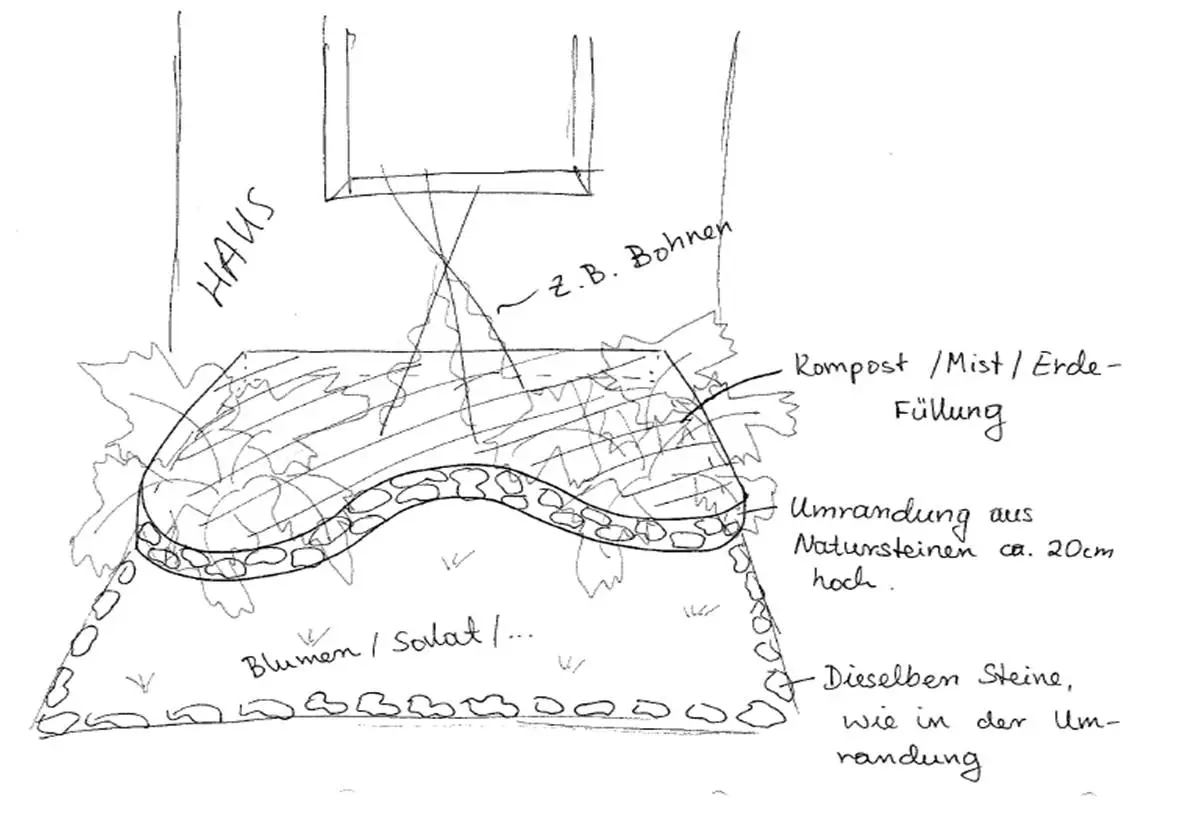 HAUS
z.B. Bohnen
Kompost / Mist / Erde-
Füllung
Umrandung aus
Natursteinen ca. 20cm
hoch.
Blumen / Salat / ...
Dieselben Steine,
wie in der Um-
randung